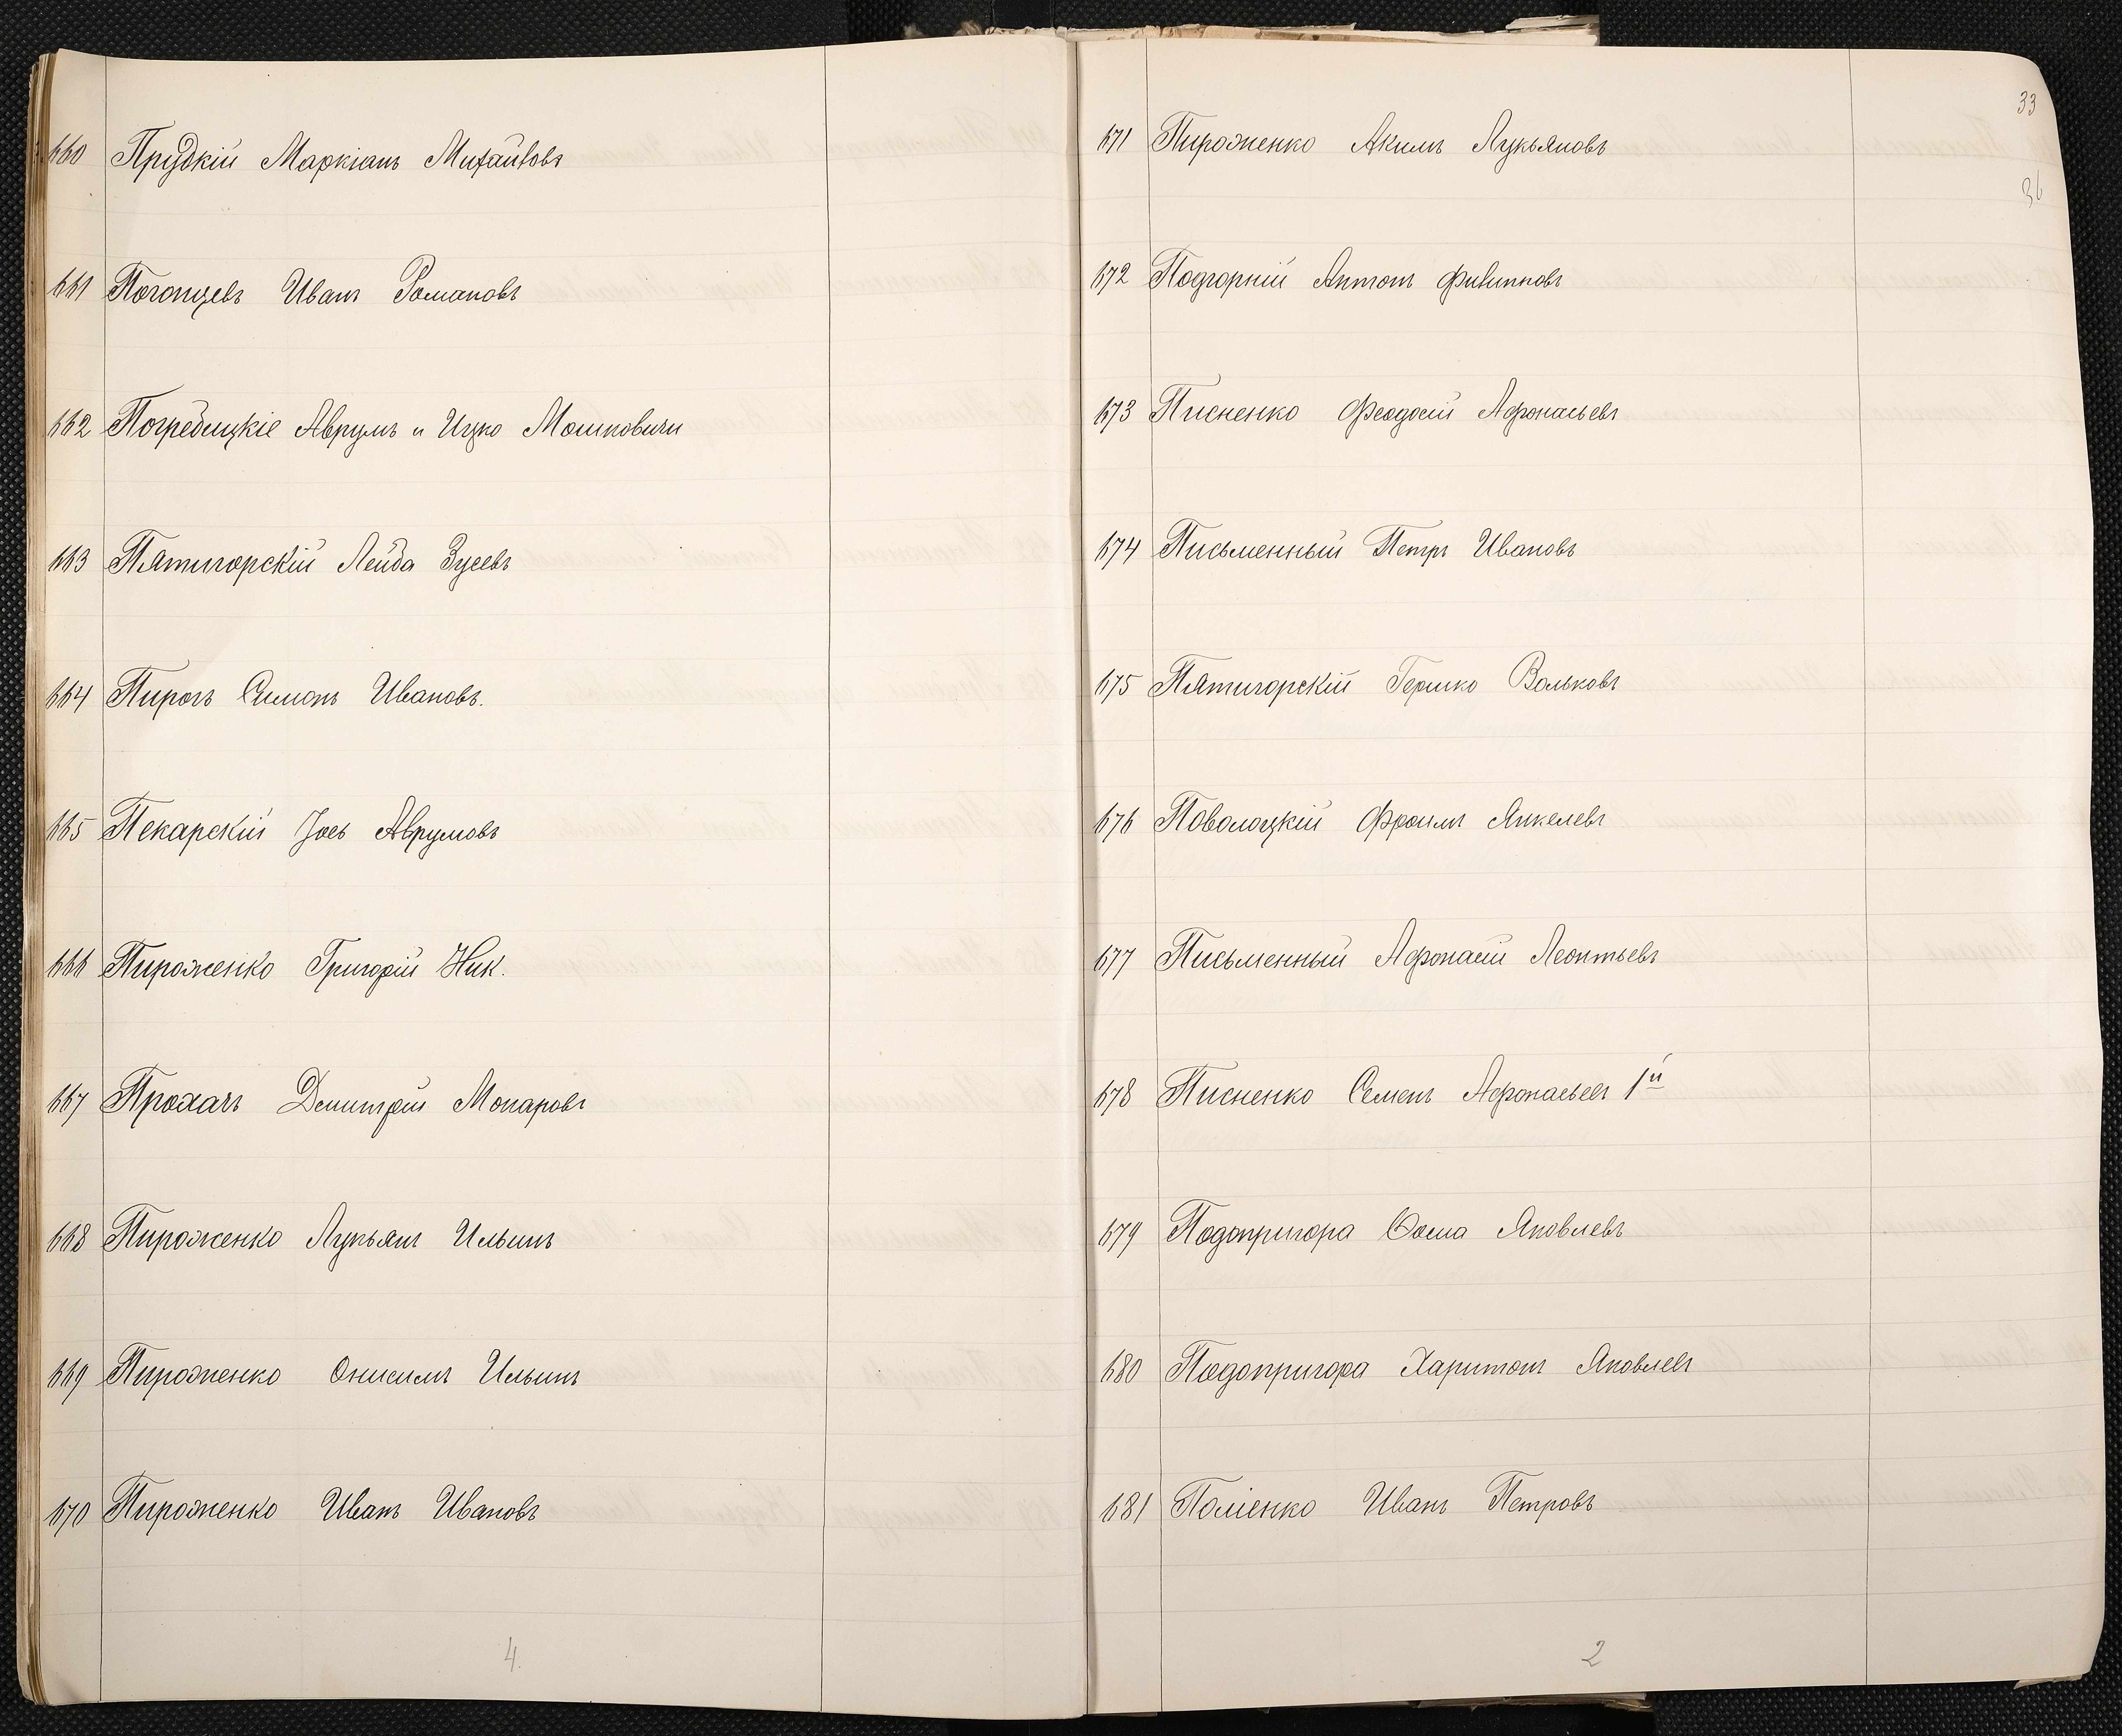 660 Прудкій Маркіанъ Михайловъ
661 Погонцевъ Иванъ Романовъ
662 Погребицкіе Аврумъ и Ицко Мошковичи
663 Пятигорскій Лейба Зусевъ
664 Пирогъ Симонъ Ивановъ.
665 Пекарскій Іось Аврумовъ
666 Пироженко Григорій Ник.
667 Прохачъ Дмитрій Макаровъ
668 Пироженко Лукьянъ Ильинъ
669 Пироженко Онисимъ Ильинъ
670 Пироженко Иванъ Ивановъ
4
33
36
671 Пироженко Акимъ Лукьяновъ
672 Подгорній Антонъ Филиповъ
673 Писненко Феодосій Афонасьевъ
674 Письменный Петръ Ивановъ
675 Пятигорскій Гершко Вольковъ
676 Поволоцкій Фроимъ Янкелевъ
677 Письменный Афонасій Леонтьевъ
678 Писненко Семенъ Афонасьевъ 1й
679 Подопригора Ѳома Яковлевъ
680 Подопригора Харитонъ Яковлевъ
681 Поліенко Иванъ Петровъ
2